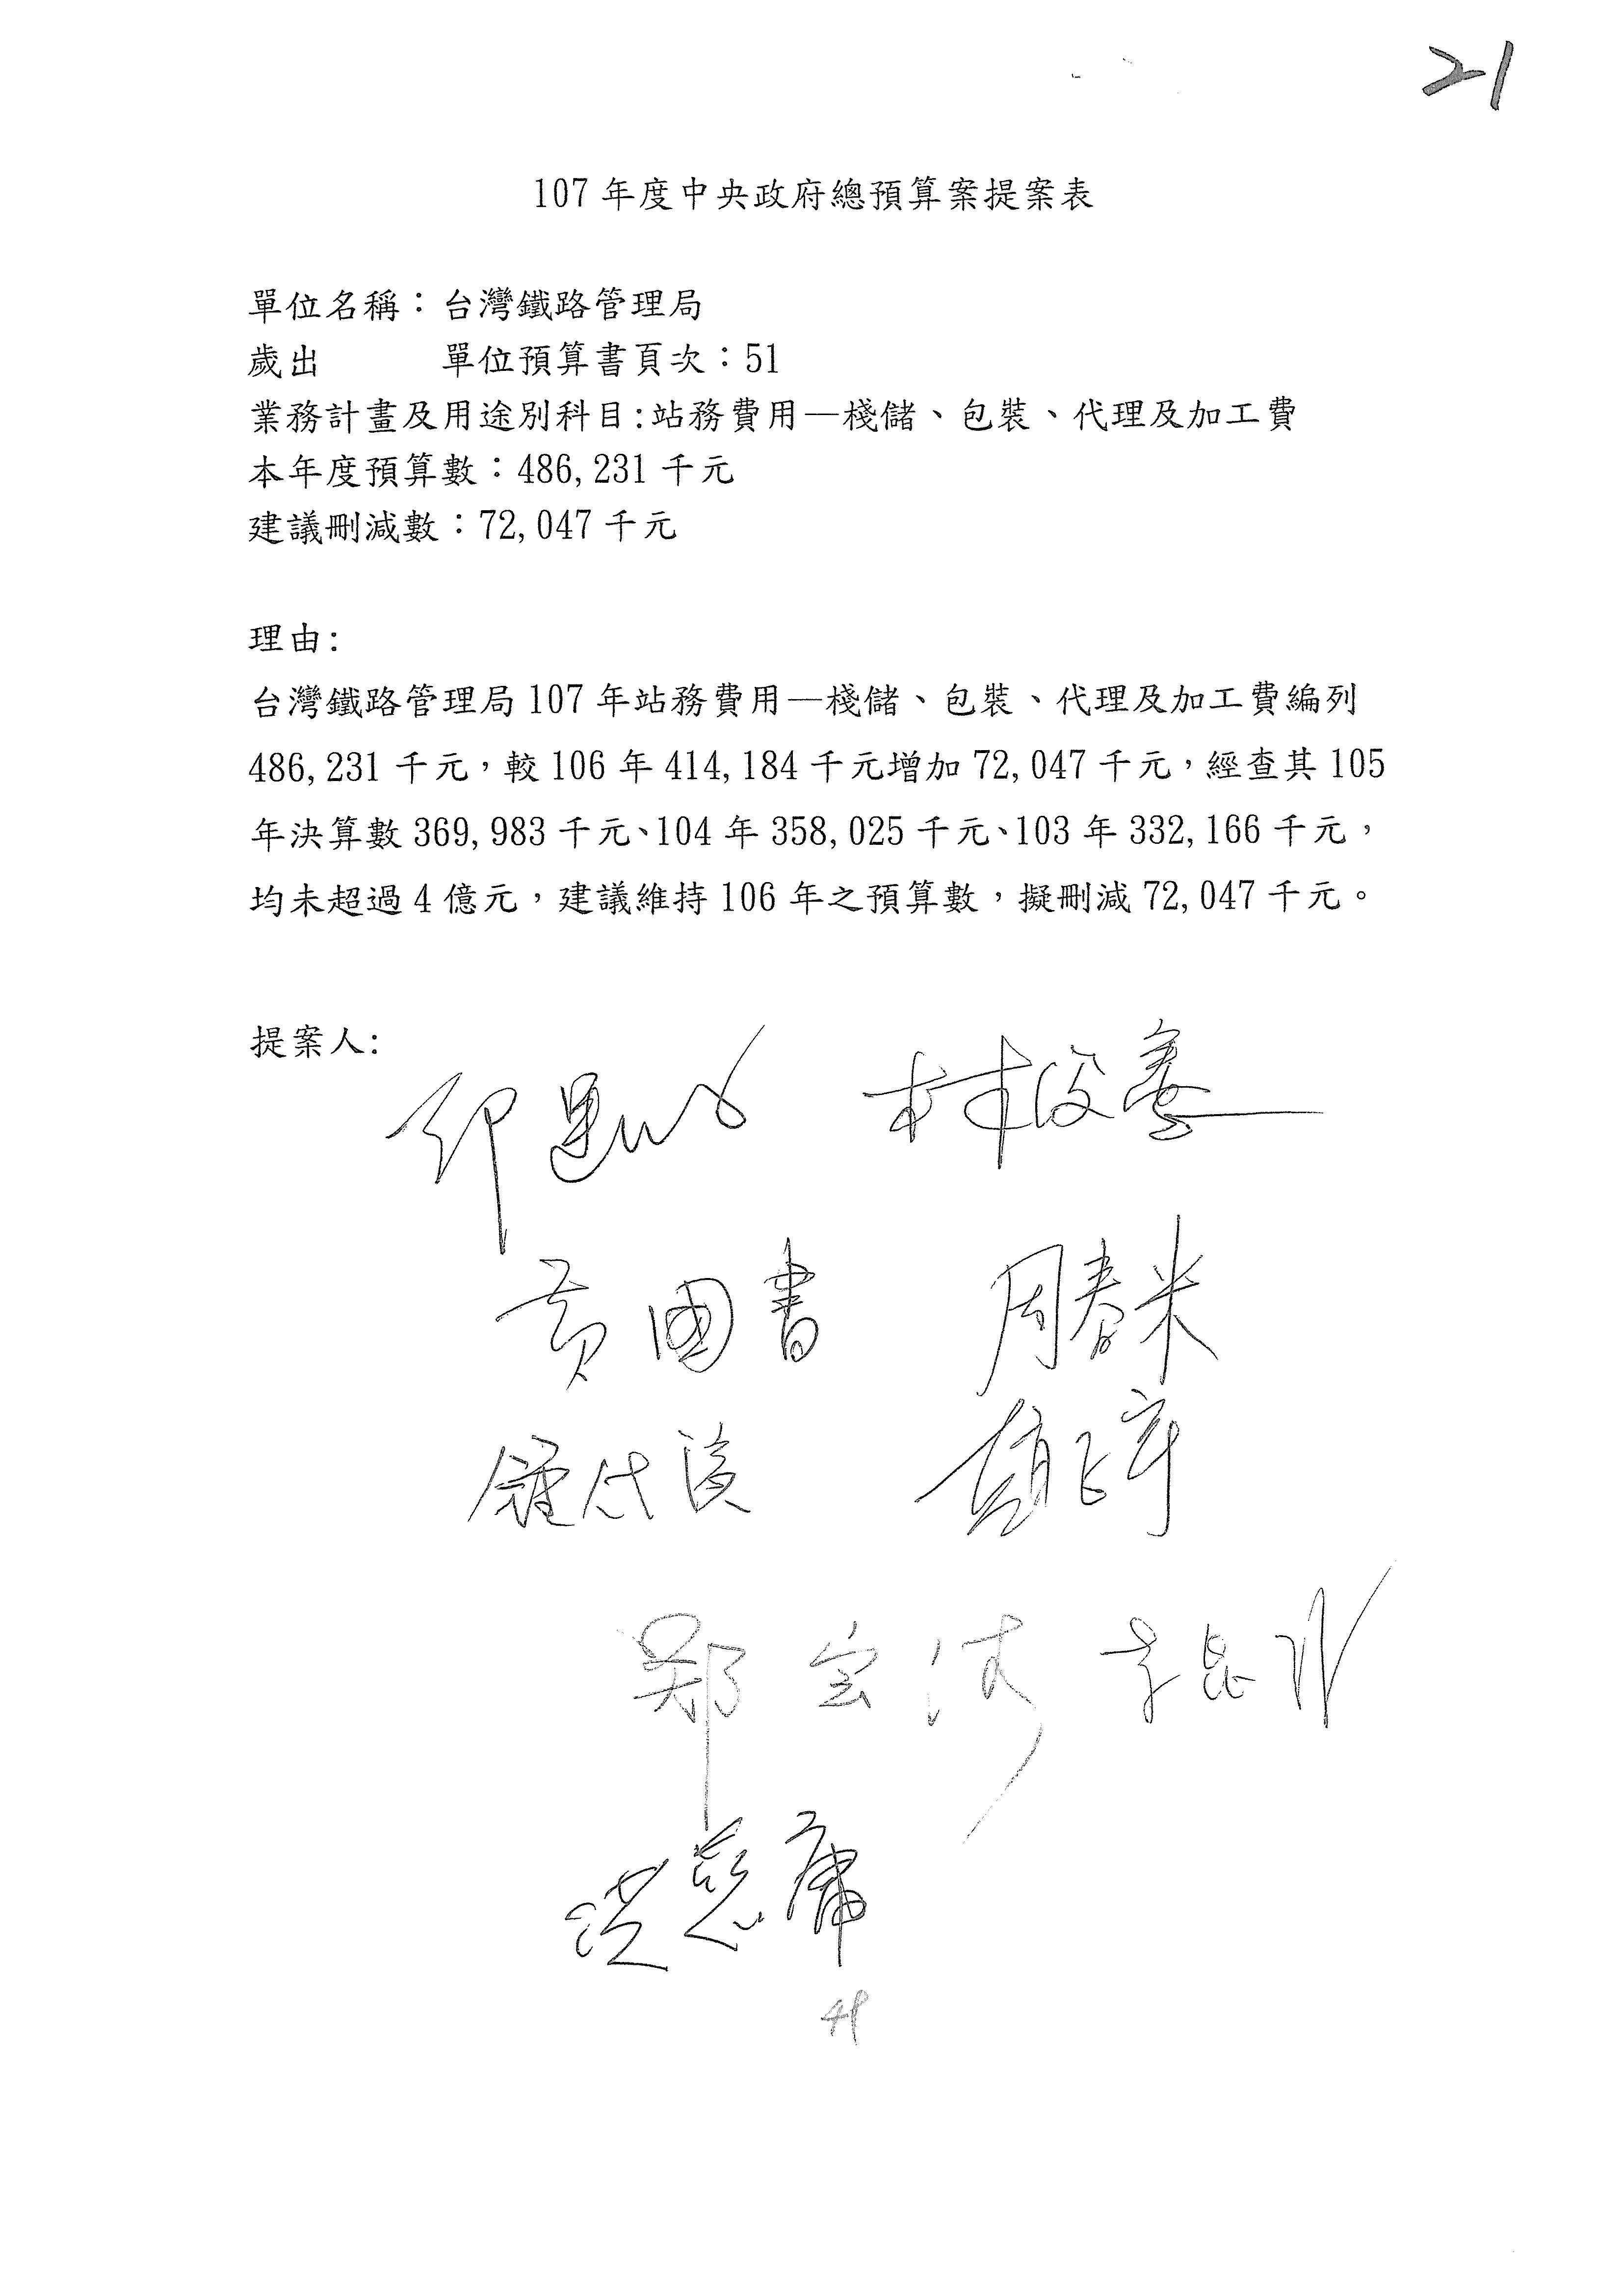 21
107 年度中央政府總預算案提案表
單位名稱：台灣鐵路管理局
歲出　　　單位預算書頁次：51
業務計畫及用途別科目:站務費用—棧儲、包裝、代理及加工費
本年度預算數：486,231 千元
建議刪減數：72,047 千元
理由:
台灣鐵路管理局 107 年站務費用—棧儲、包裝、代理及加工費編列
486,231 千元，較 106 年 414,184 千元增加 72,047 千元，經查其 105
年決算數 369,983 千元、104 年 358,025 千元、103 年 332,166 千元，
均未超過 4 億元，建議維持 106 年之預算數，擬刪減 72,047 千元。
提案人:
林俊憲
黃國書　周春米
鄭宝清
洪慈庸